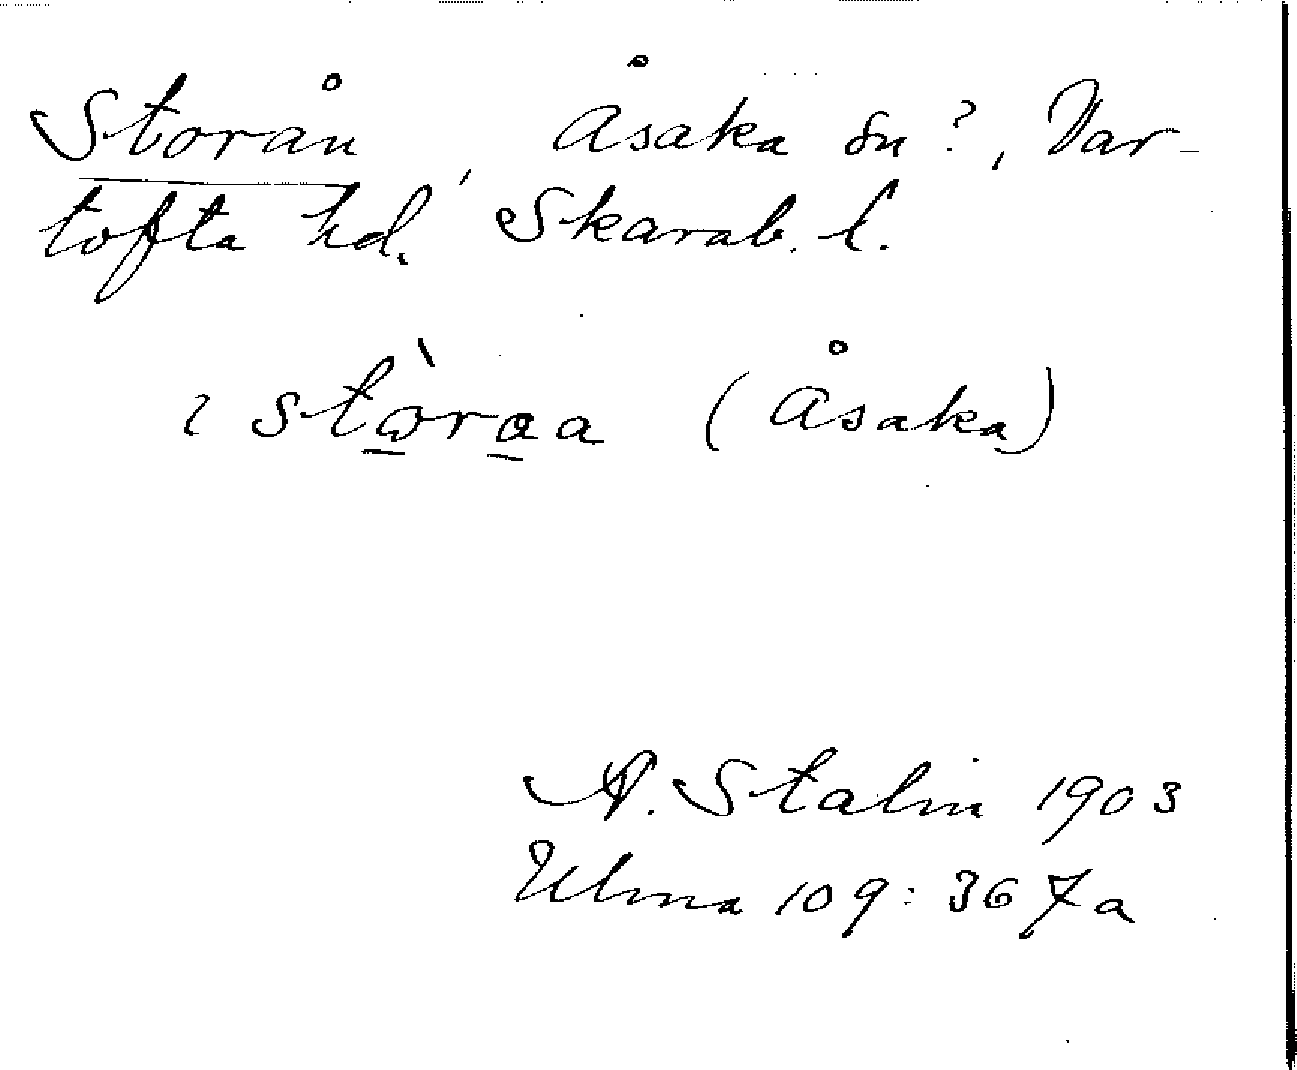 Storån, Åsaka sn?, Var-
tofta hd. Skarab. l.
ɩ stὼ̱ra̱a (Åsaka)
A. Stalin 1903
Ulma 109:367a